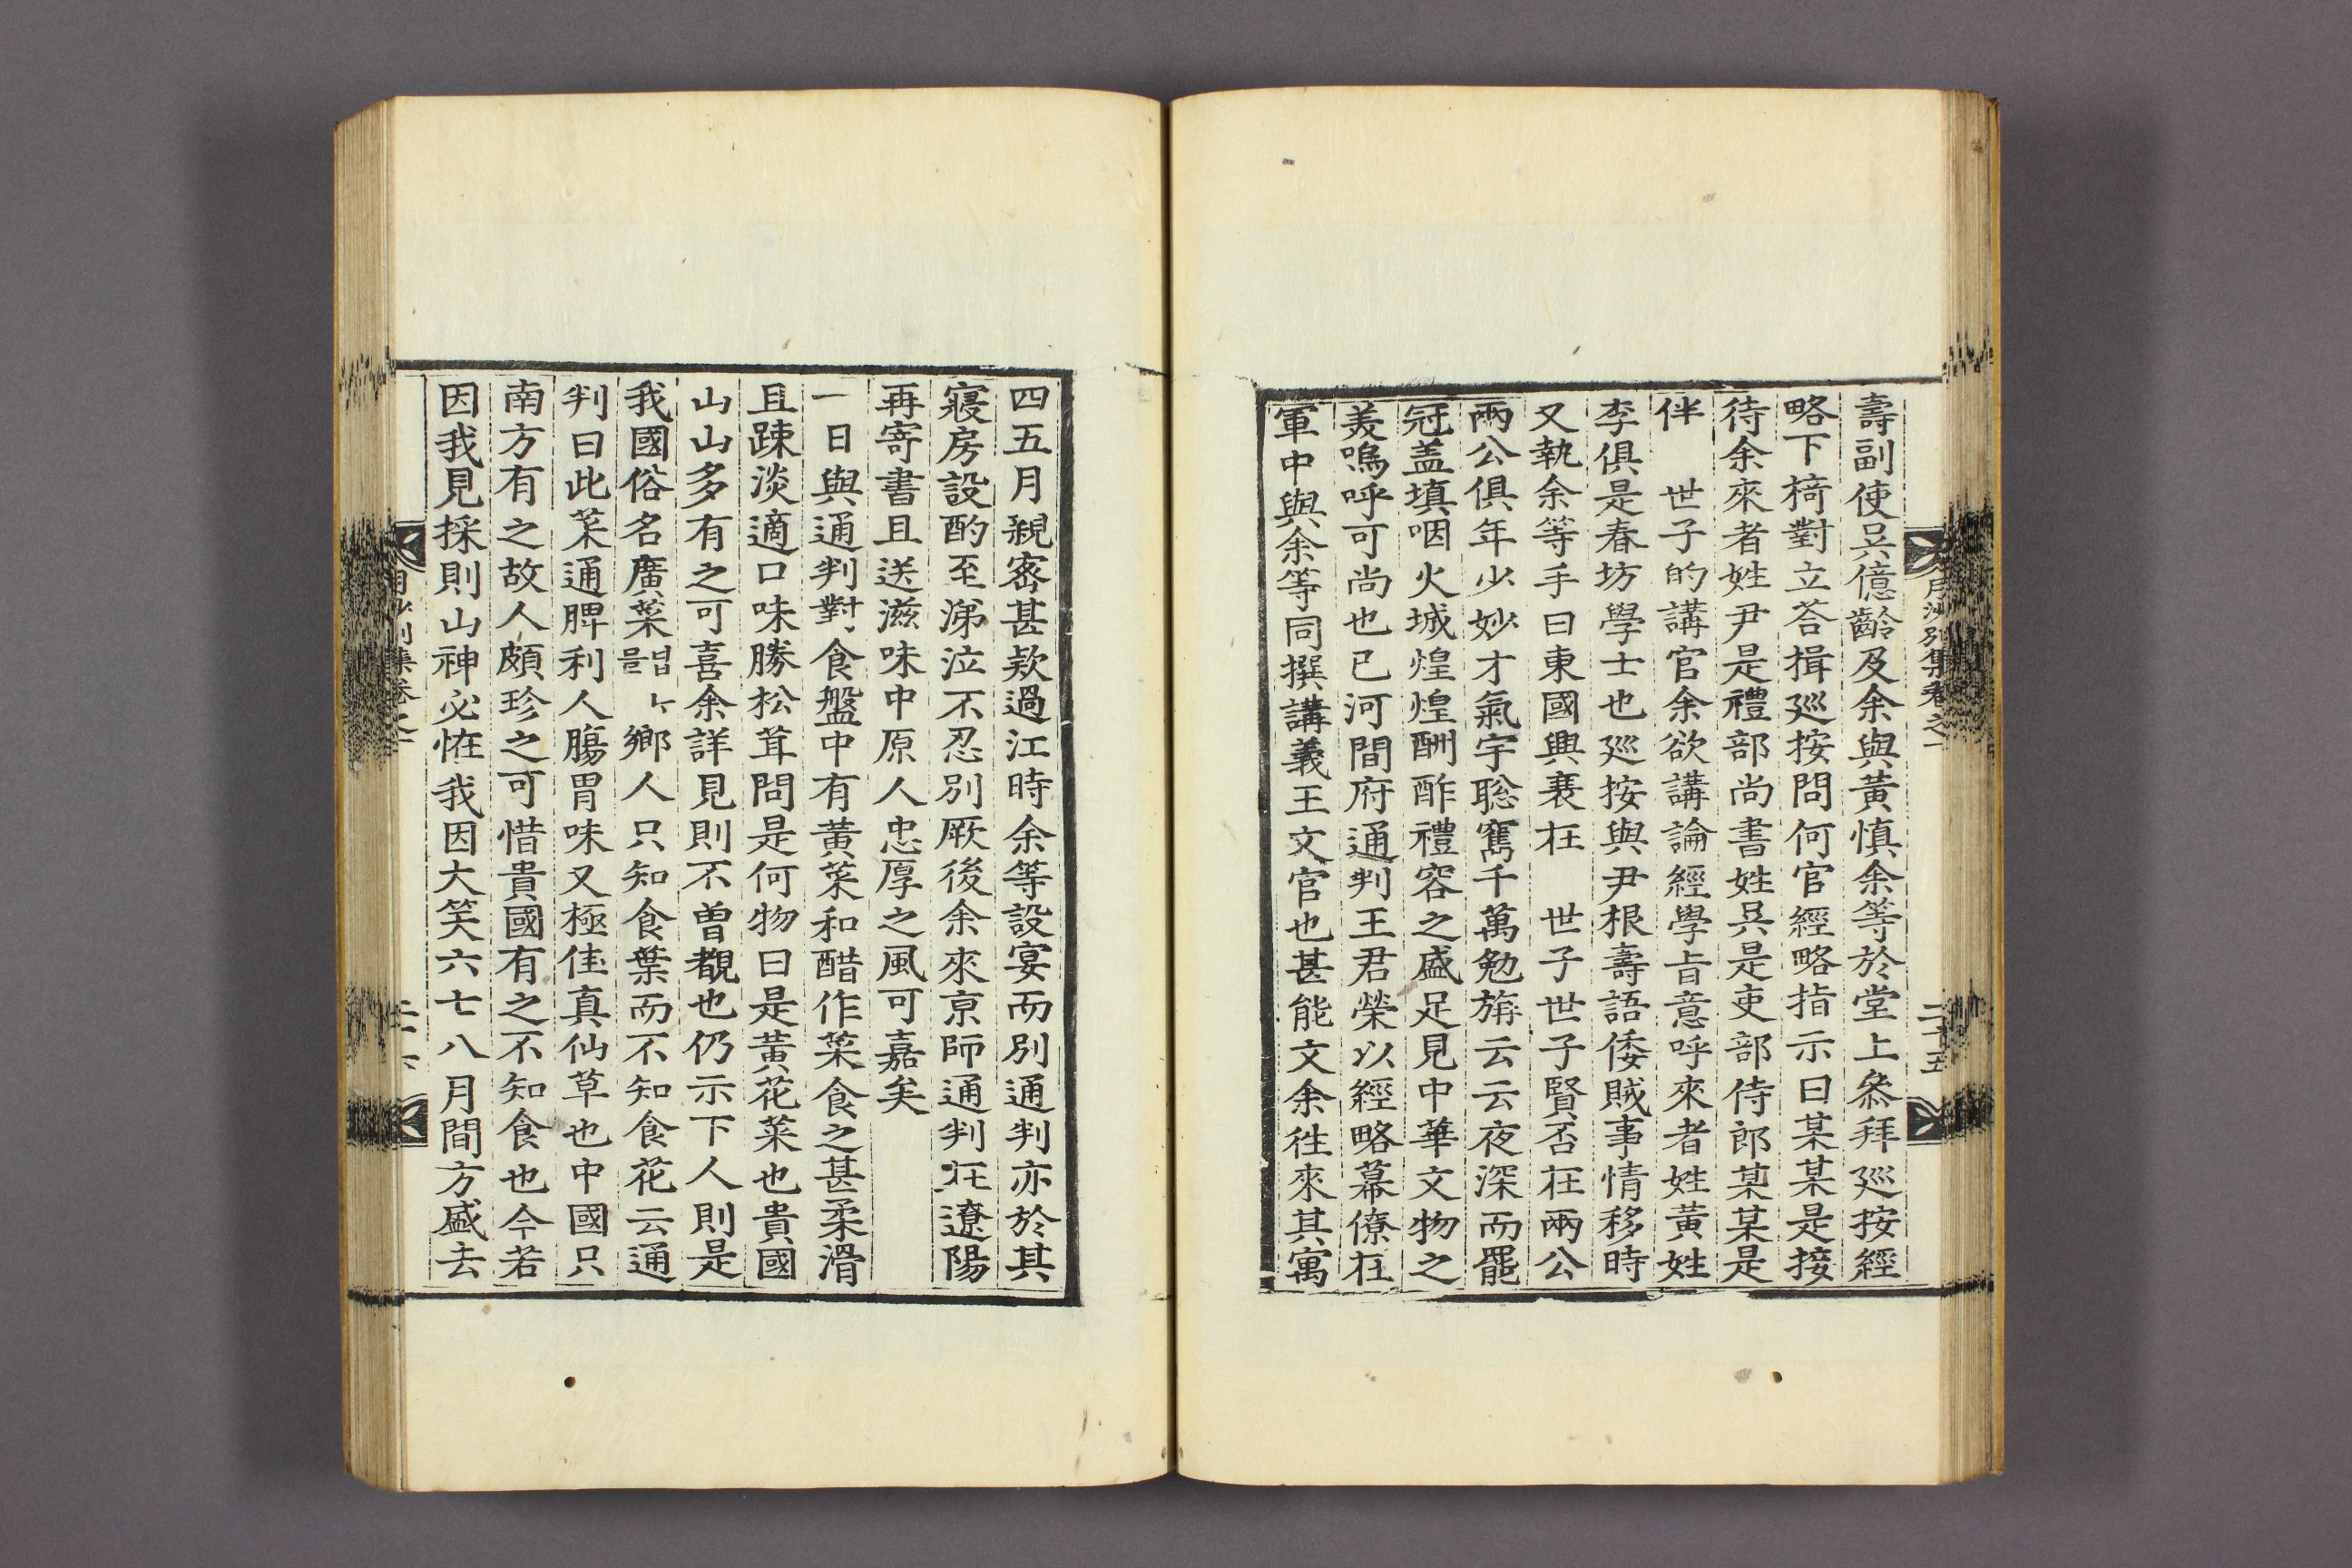 月沙別集卷之一
二十五
壽副使吳億齡及余與黃愼余等於堂上叅拜廵按經
略下椅對立荅揖廵按問何官經略指示曰某某是接
待余來者姓尹是禮部尚書姓吳是吏部侍郎某某是
伴　世子的講官余欲講論經學旨意呼來者姓黃姓
李俱是春坊學士也廵按與尹根壽語倭賊事情移時
又執余等手曰東國興衰在　世子世子賢否在兩公
兩公俱年少妙才氣宇聡寯千萬勉旃云云夜深而罷
冠盖填咽火城煌煌酬酢禮容之盛足見中華文物之
羙嗚呼可尚也已河間府通判王君榮以經略幕僚在
軍中與余等同撰講義王文官也甚能文余徃來其寓
四五月親密甚欵過江時余等設宴而別通判亦於其
寢房設酌至涕泣不忍別厥後余來京師通判在遼陽
再寄書且送滋味中原人忠厚之風可嘉矣
一日與通判對食盤中有黃菜和醋作菜食之甚柔滑
且踈淡適口味勝松茸問是何物曰是黃花菜也貴國
山山多有之可喜余詳見則不曾覩也仍示下人則是
我國俗名廣菜넙ᄂᆞ믈鄉人只知食葉而不知食花云通
判曰此菜通脾利人膓胃味又極佳真仙草也中國只
南方有之故人頗珍之可惜貴國有之不知食也今若
因我見採則山神必恠我因大笑六七八月間方盛去
月沙別集卷之一